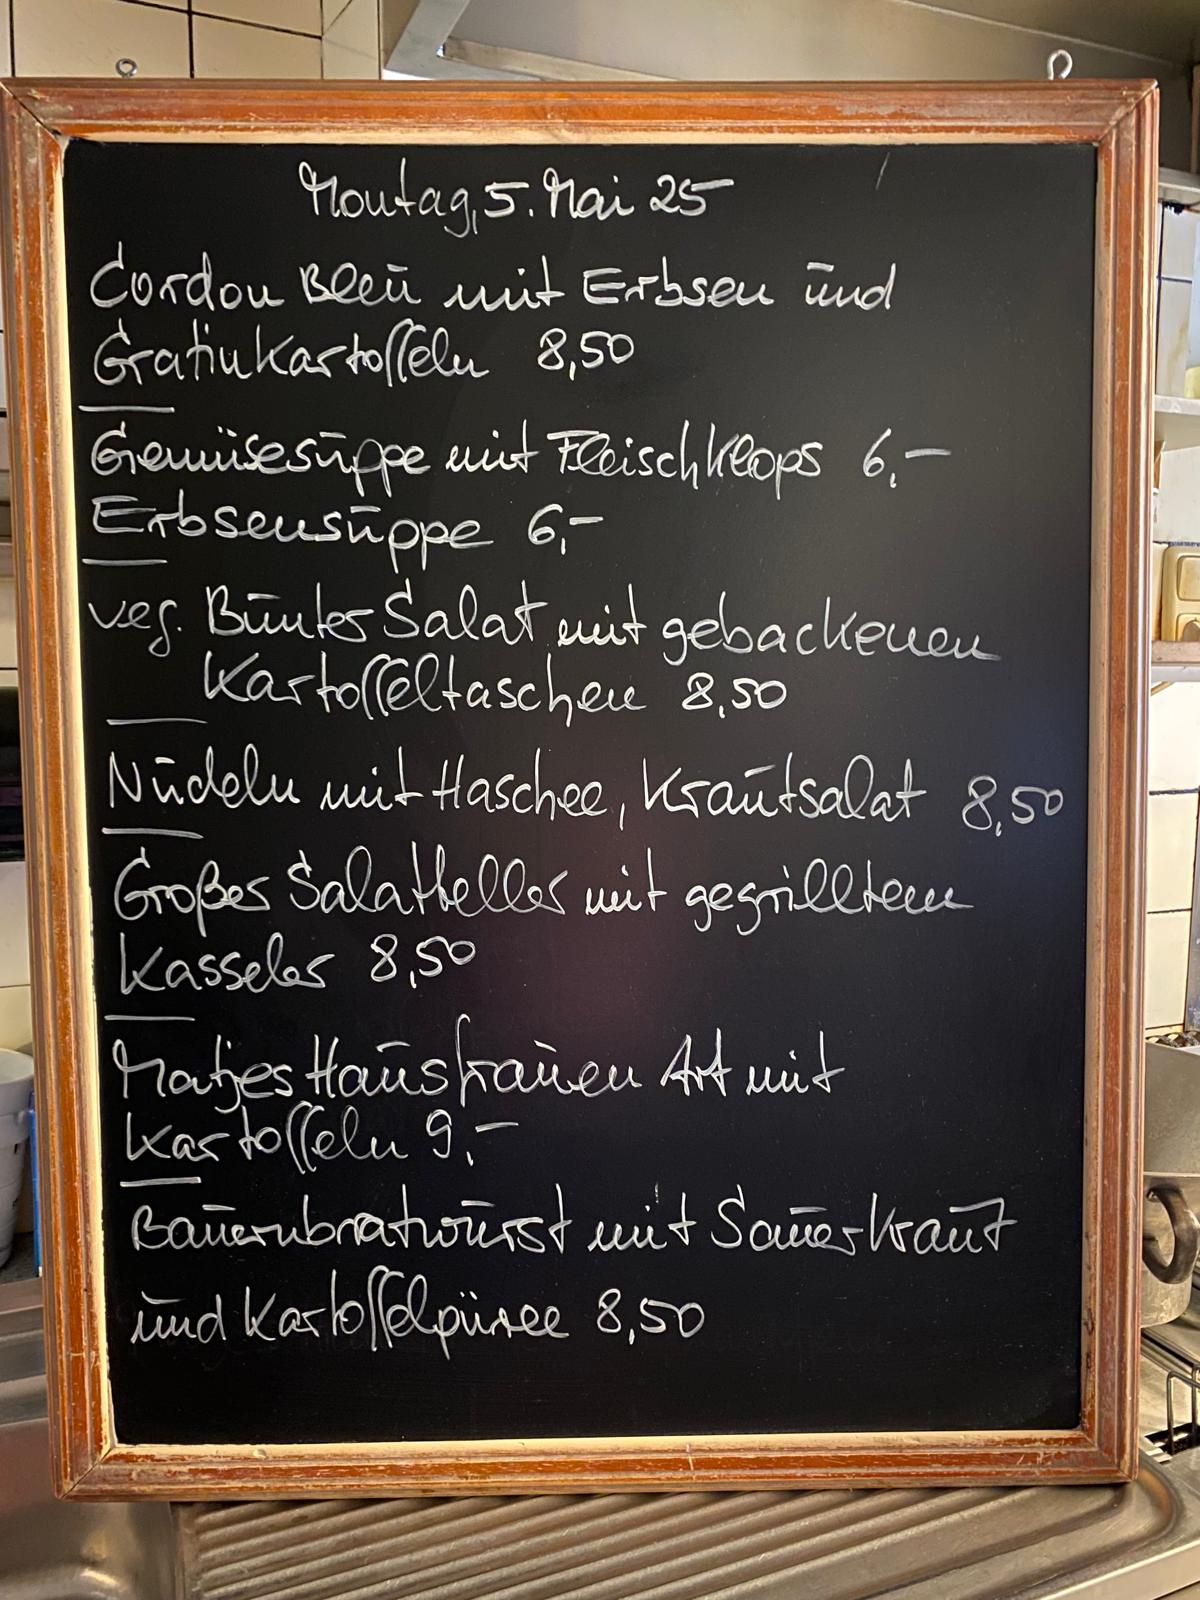 Montag, 5. Mai 25
Cordon Bleu mit Erbsen und
Gratinkartoffeln 8,50
Gemüsesuppe mit Fleischklops 6,-
Erbsensuppe 6,-
veg. Bunter Salat mit gebackenen
Kartoffeltaschen 8,50
Nudeln mit Haschee, Krautsalat 8,50
Großer Salatteller mit gegrilltem
Kasseler 8,50
Matjes Hausfrauen Art mit
Kartoffeln 9,-
Bauernbratwurst mit Sauerkraut
und Kartoffelpüree 8,50